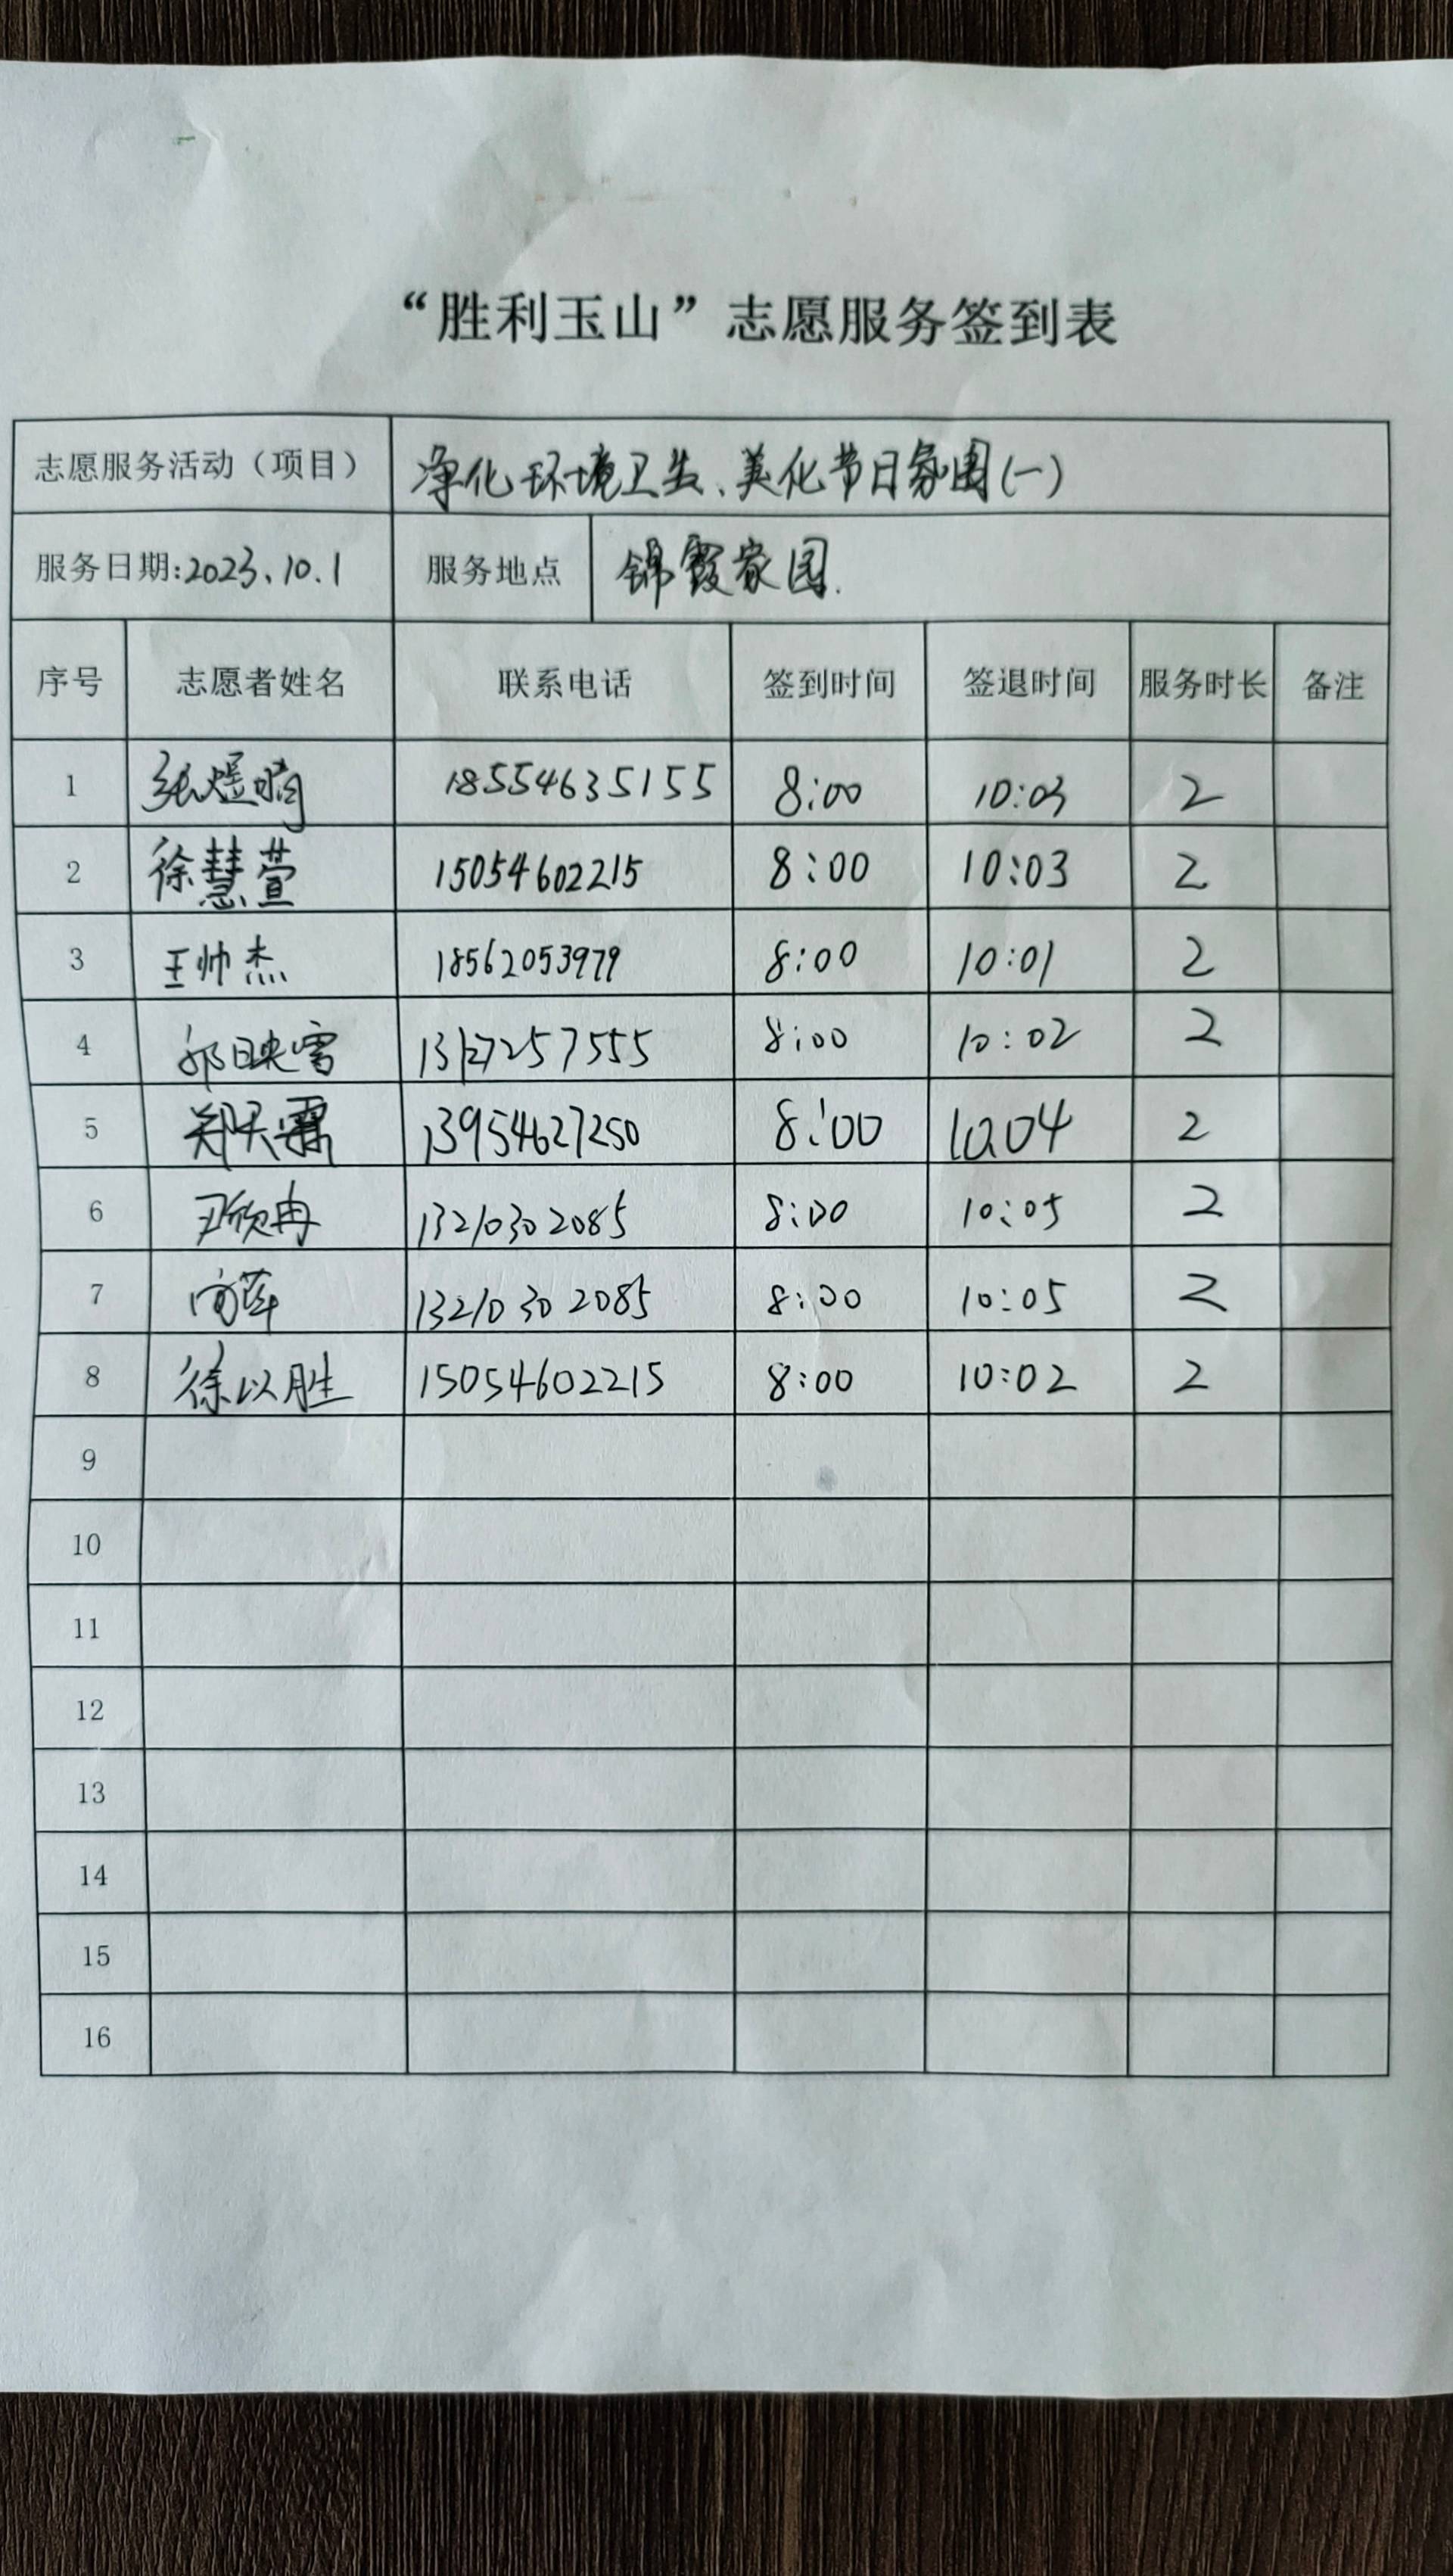 “胜利玉山”志愿服务签到表
志愿服务活动（项目） 净化环境卫生、美化节日氛围(一)
服务日期:2023.10.1 服务地点 锦霞家园.
序号 志愿者姓名 联系电话 签到时间 签退时间 服务时长 备注
1 张煜 18554635155 8:00 10:03 2
2 徐慧萱 15054602215 8:00 10:03 2
3 王帅杰 18562053979 8:00 10:01 2
4 郭映雪 8:00 10:02 2
5 郑天霖 13954627250 8:00 10:04 2
6 尹欣冉 13210302085 8:00 10:05 2
7 13210302085 8:00 10:05 2
8 徐以胜 15054602215 8:00 10:02 2
9
10
11
12
13
14
15
16